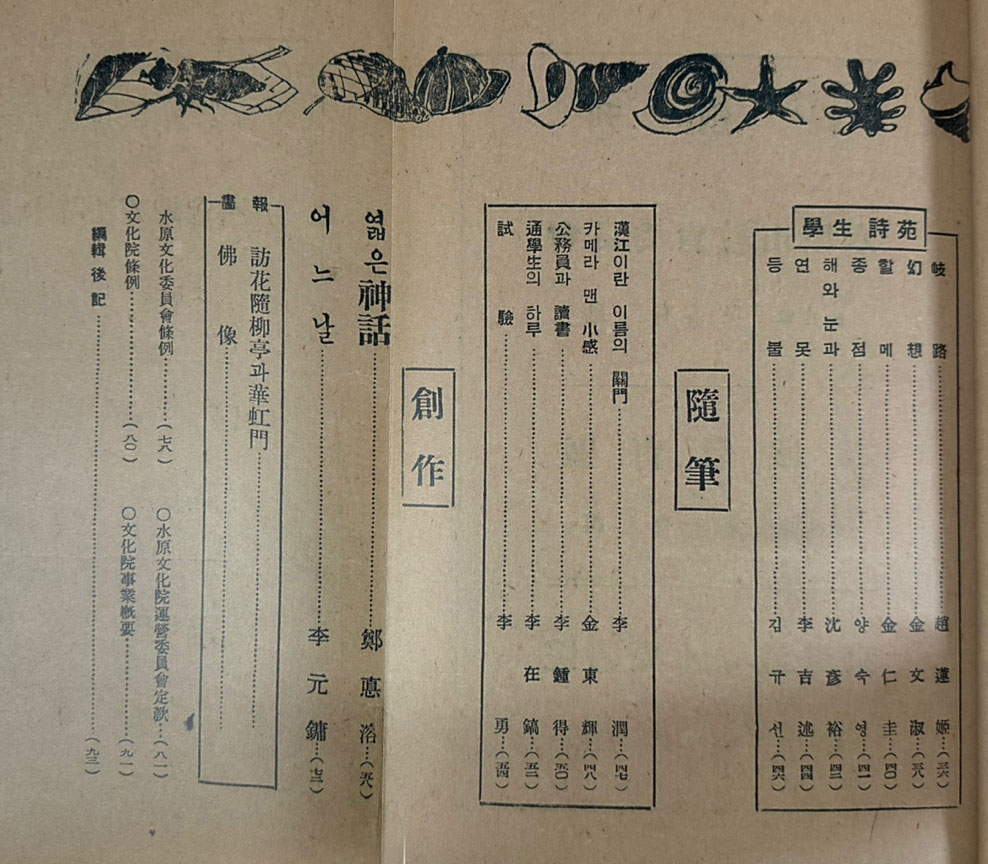 學生詩苑
岐路……趙蓮姬…(三六)
幻想……金文淑…(三八)
할메……金仁圭…(四〇)
종점……양숙영…(四一)
해와눈과……沈彥裕…(四二)
연못……李吉述…(四四)
등불……김규선…(四六)
隨筆
漢江이란 이름의 關門……李潤…(四七)
카메라 맨 小感……金東輝…(四八)
公務員과 讀書……李鍾得…(五〇)
通學生의 하루……李在鎬…(五二)
試驗……李勇…(五四)
創作
엷은神話……鄭悳溶…(五八)
어느날……李元鏞…(七三)
畵報
訪花隨柳亭과華虹門……
佛像……
水原文化委員會條例……(七八)
○水原文化院運營委員會定款…(八一)
○文化院條例……(八〇)
○文化院事業槪要……(九一)
編輯後記……(九三)